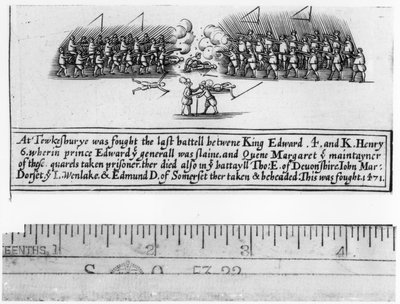 At Tewkesburye was fought the last battell betwene King Edward .4. and K. Henry
6. wherin prince Edward yͤ generall was slaine, and Quene Margaret yͤ maintayner
of thes quarels taken prisoner. ther died also in yͤ battayll Tho: E. of Deuonshire Iohn Mar:
Dorset. yͤ L. Wenlake. & Edmund D. of Somerset ther taken & beheaded: This was fought. 1471.
EENTHS, 1 2 3 4